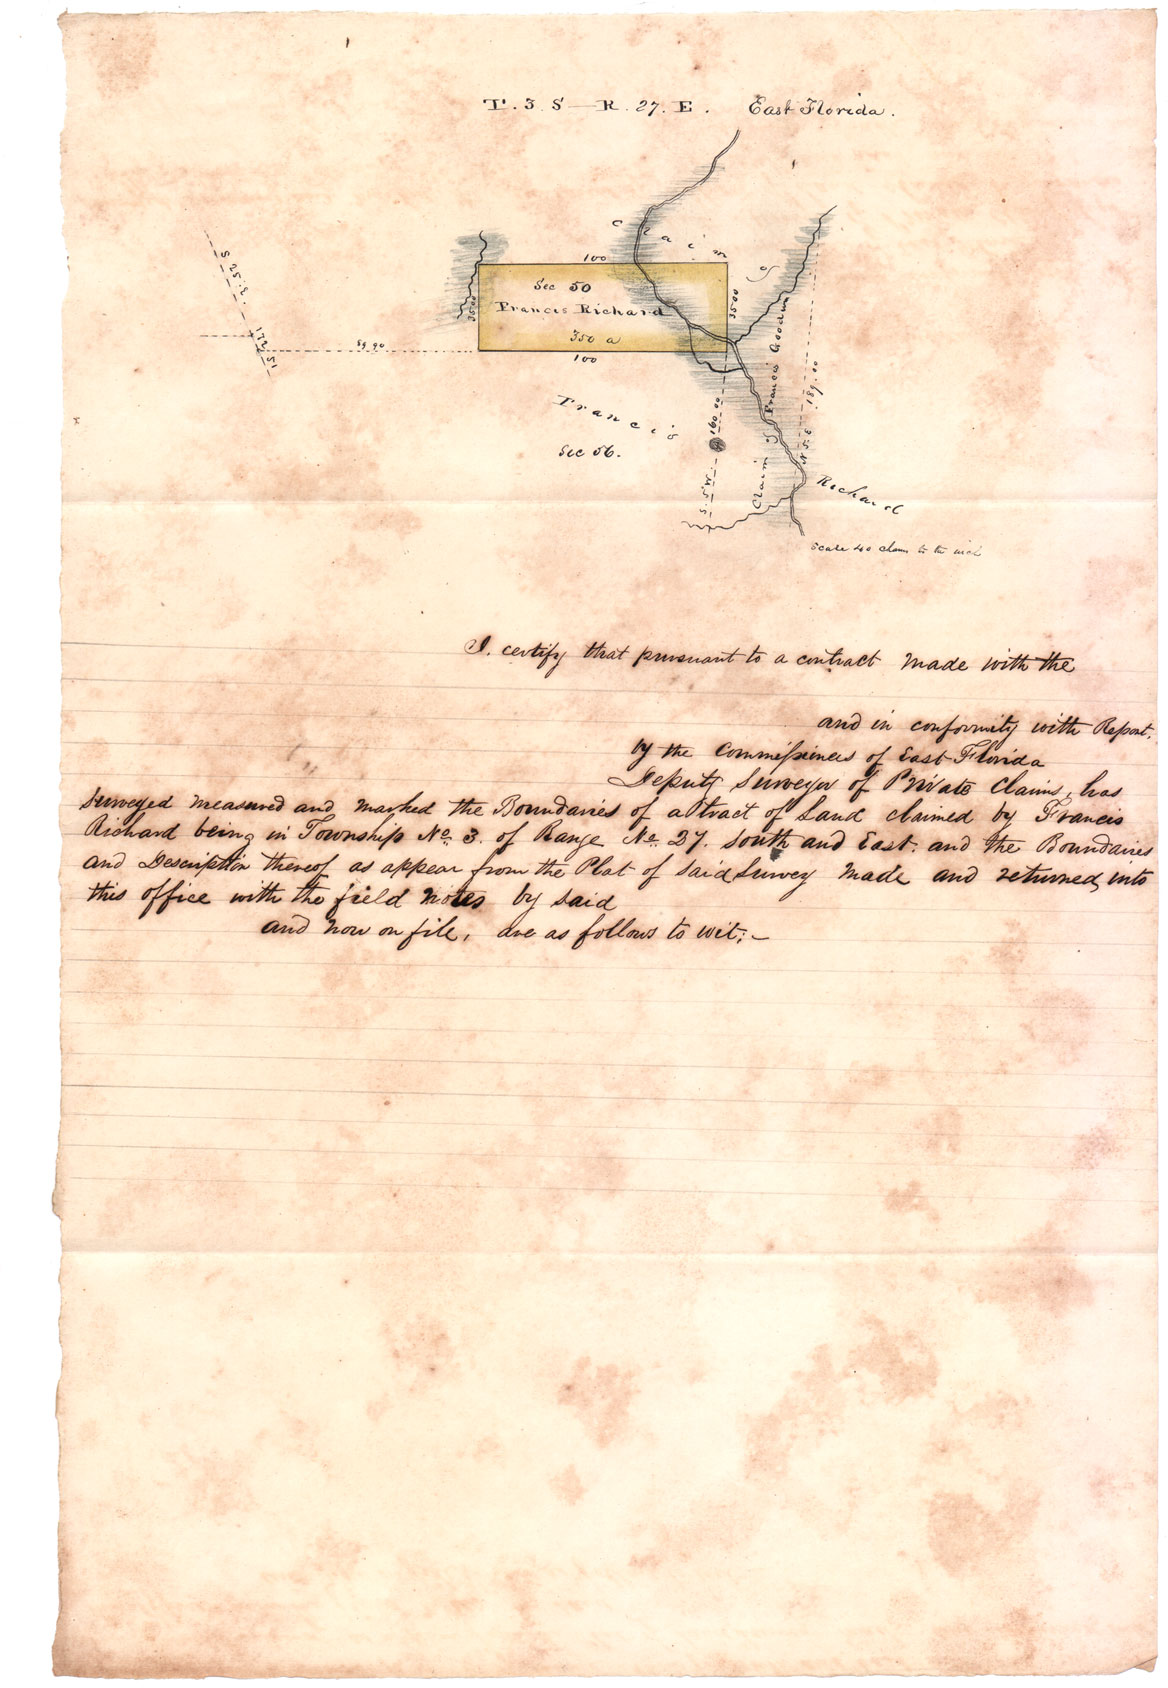 T. 3 S — R. 27. E. East Florida.
Claim of
100
S 25. E.
Sec 50
35.00
35.00
Francis Richard
172 51
89 90
350 a
100
Claim of Francis Goodwin
189.00
N 5. E
Francis
160 00
Sec 56.
S. 5 W.
Richard
Scale 40 chains to the inch
I. certify that pursuant to a contract made with the
and in conformity with Report.
by the commissioners of East Florida
Deputy Surveyor of Private Claims, has
Surveyed measured and marked the Boundaries of a tract of Land claimed by Francis
Richard being in Township No. 3. of Range No. 27. South and East. and the Boundaries
and Description thereof as appear from the Plat of said Survey made and returned into
this office with the field notes by said
and now on file, are as follows to wit:—